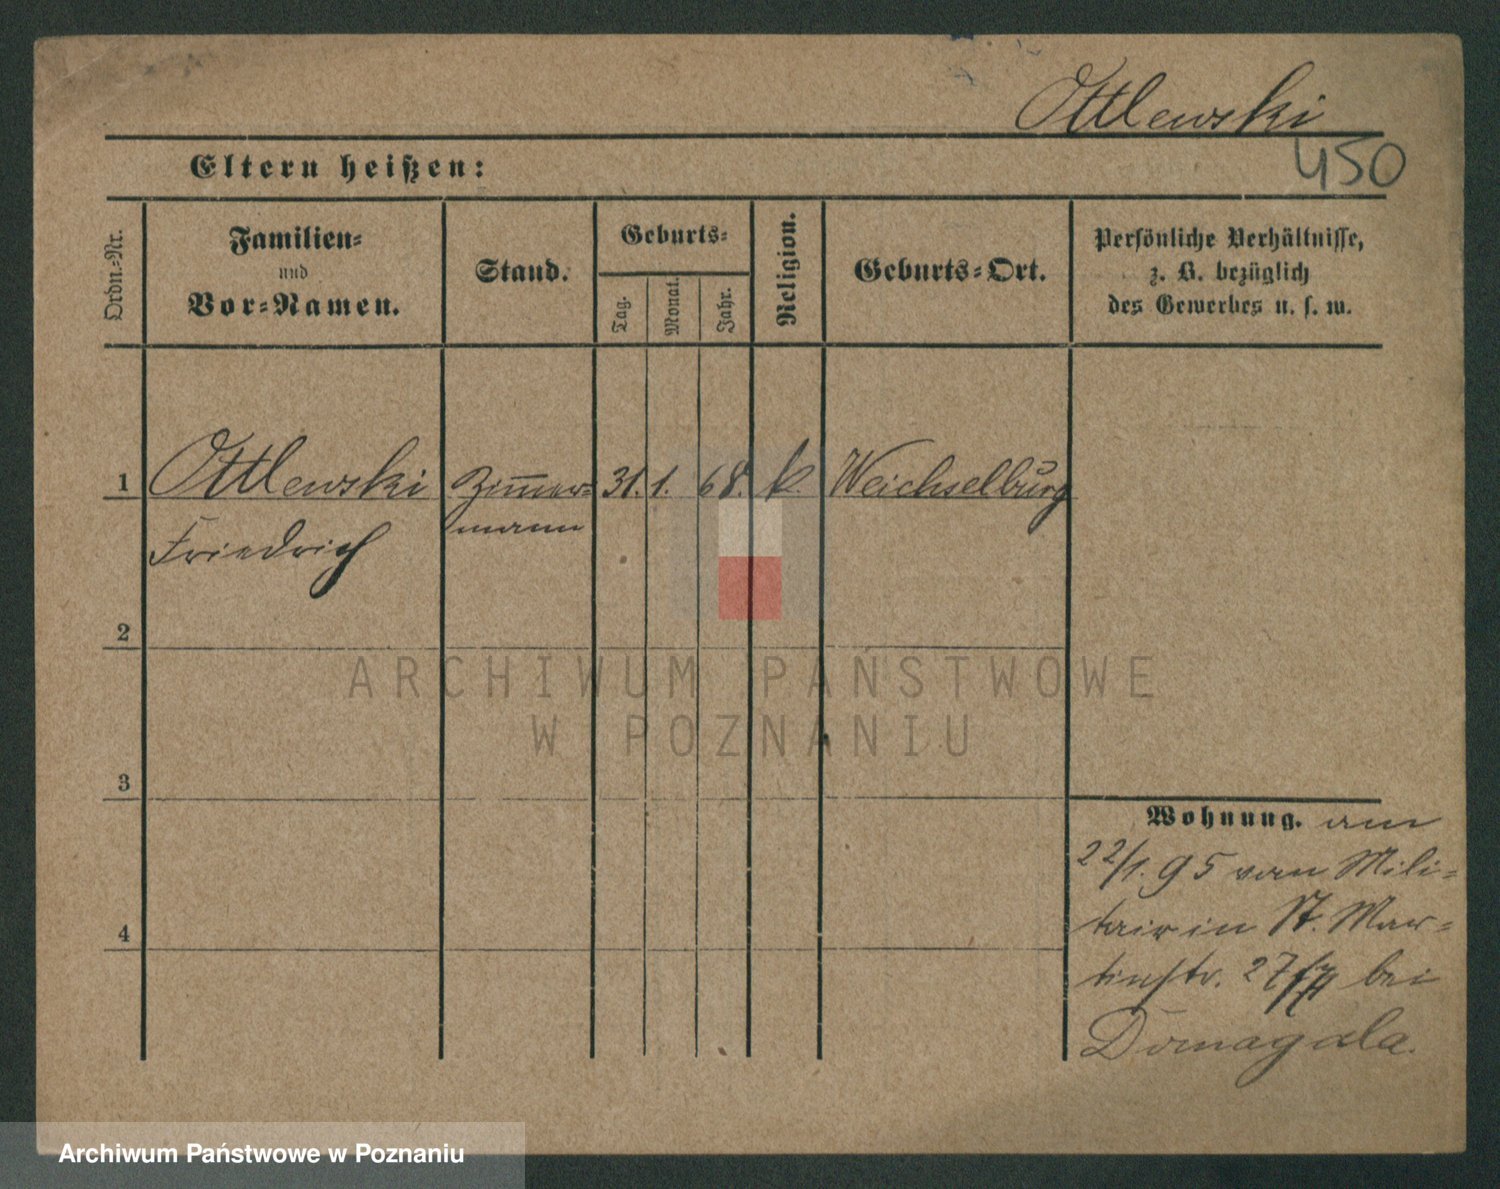 Ottlewski
450
Eltern heißen:
Ordn.-Nr.
Familien-
und
Vor-Namen.
Stand.
Geburts-
Tag.
Monat.
Jahr.
Religion.
Geburts-Ort.
Persönliche Verhältnisse,
z. B. bezüglich
des Gewerbes u. s. w.
1 Ottlewski Zimmer= 31. 1. 68. k. Weichselburg
Friedrich mann
2
3
4
Wohnung. am
22/1. 95 vom Mili=
tair in St. Mar=
tinstr. 27 bei
Domagala.
ARCHIWUM PAŃSTWOWE
W POZNANIU
Archiwum Państwowe w Poznaniu